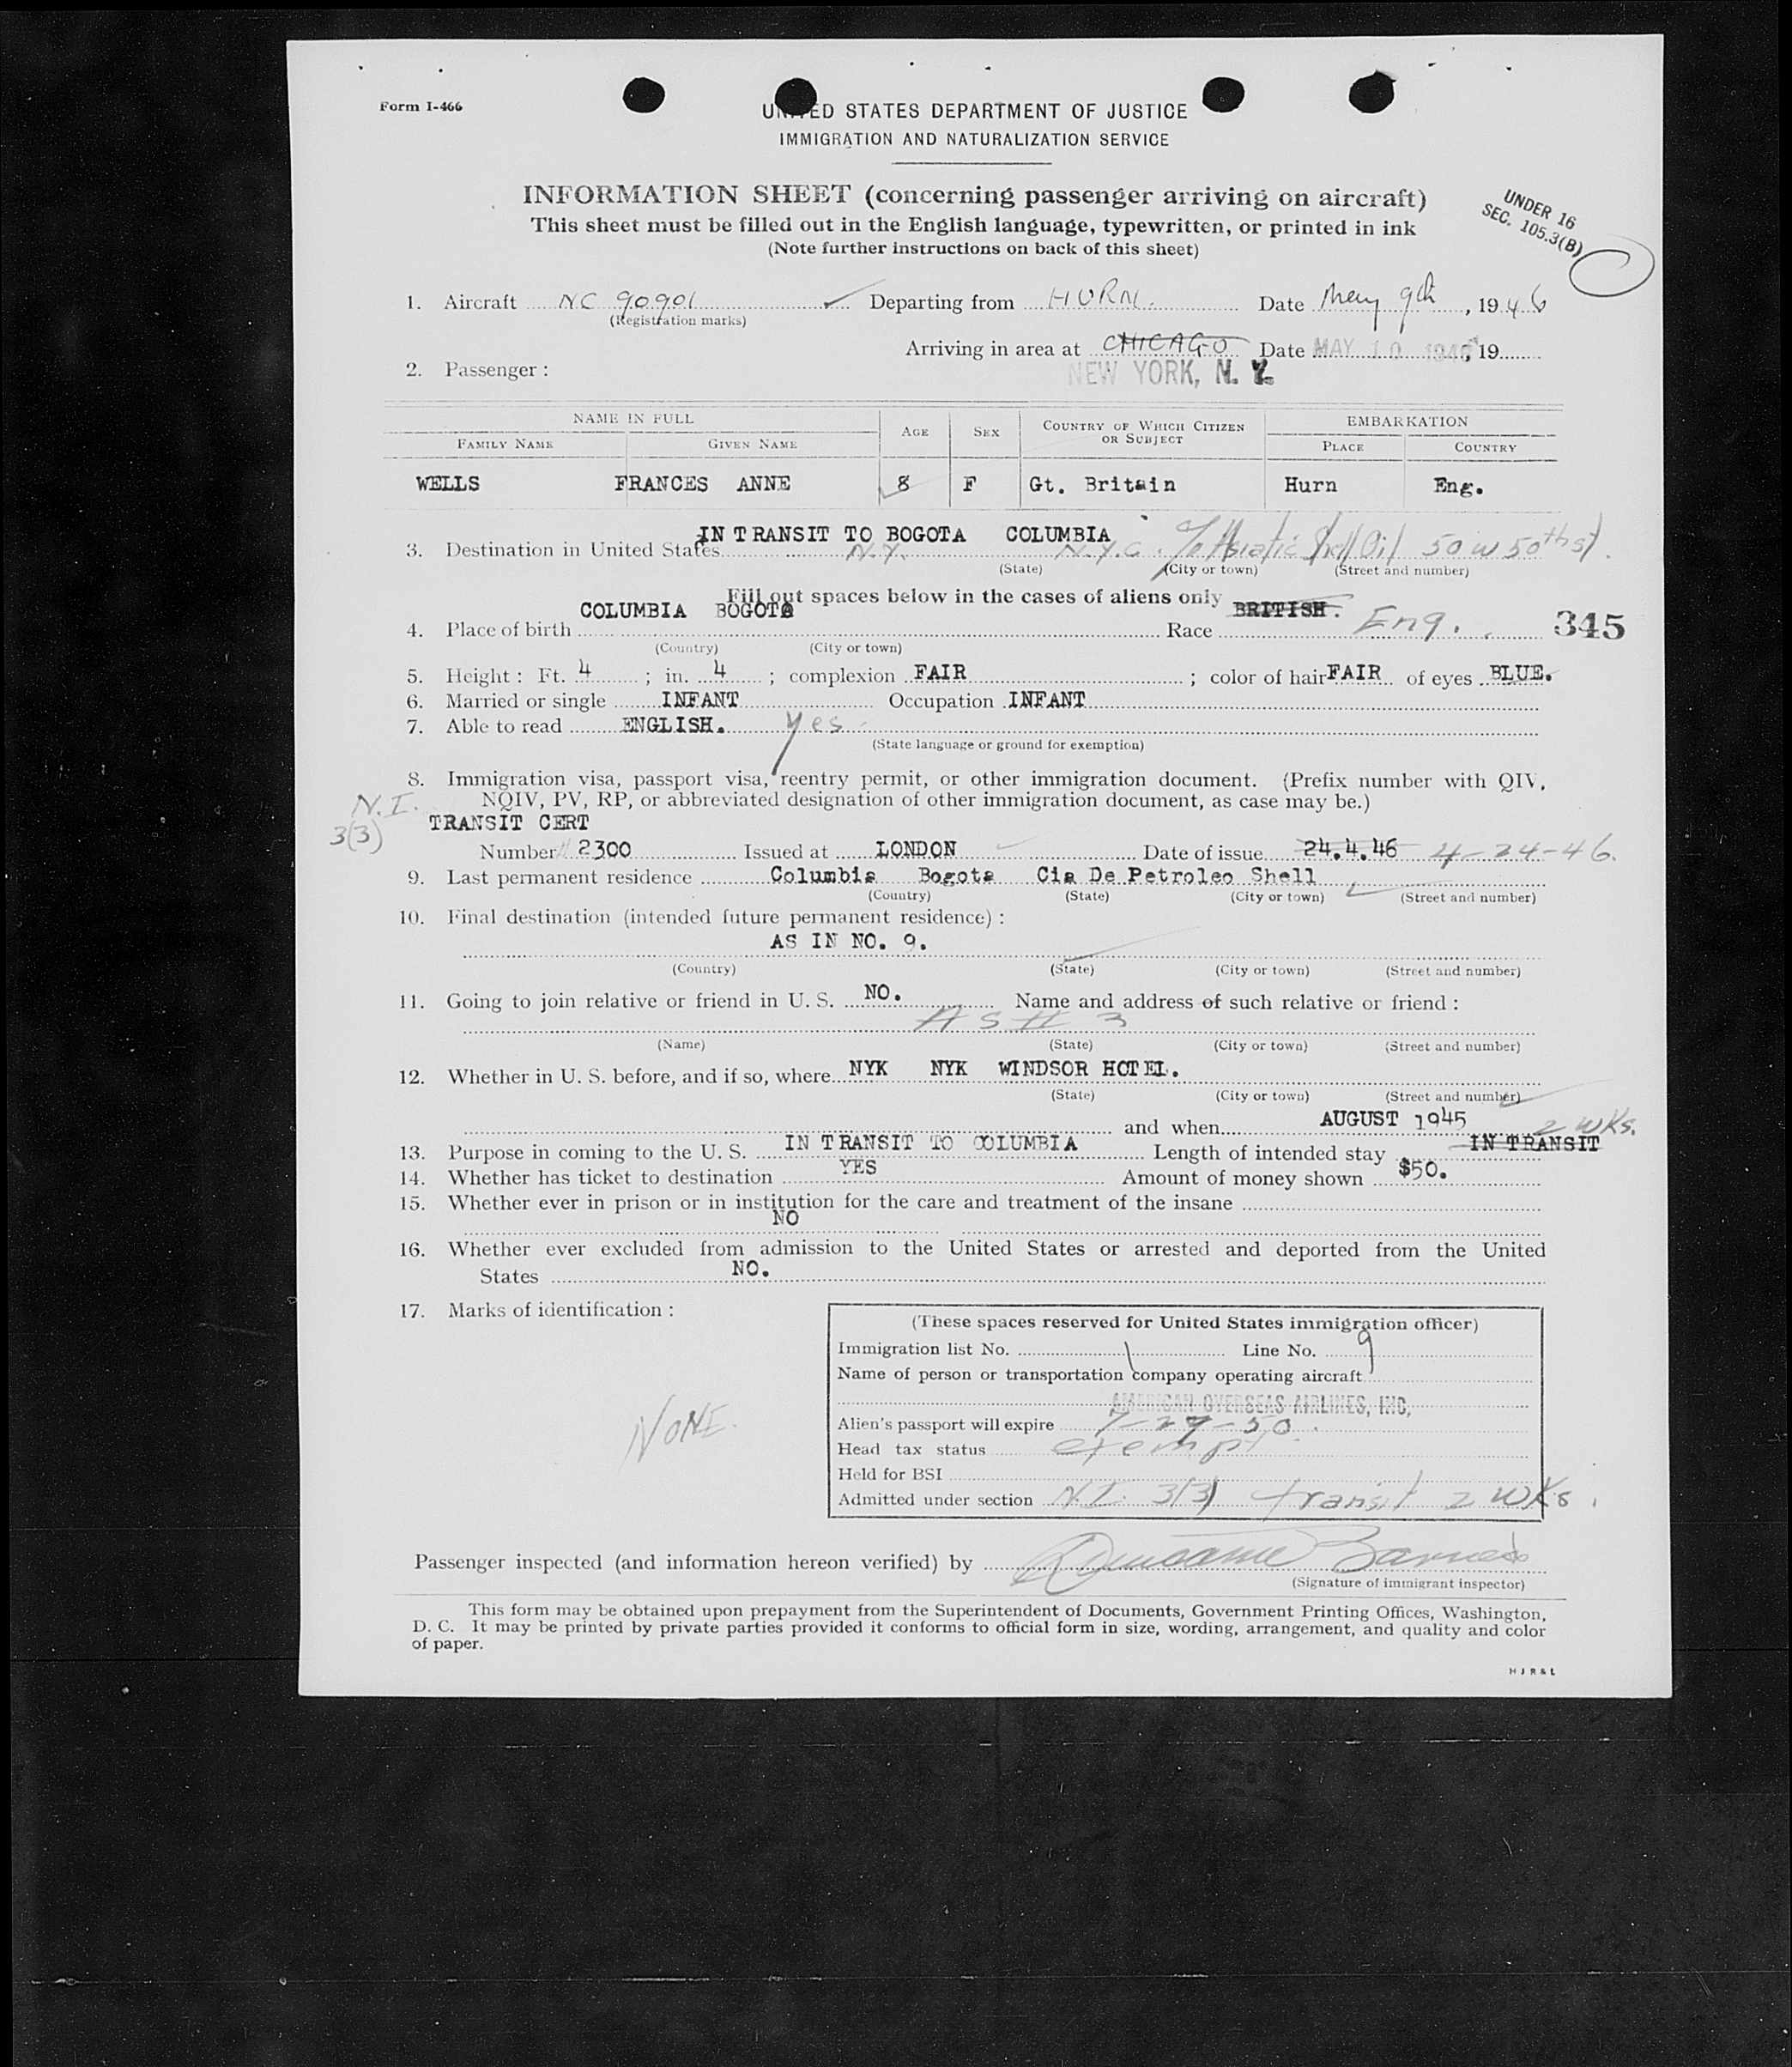 Form I-466
UNITED STATES DEPARTMENT OF JUSTICE
IMMIGRATION AND NATURALIZATION SERVICE
INFORMATION SHEET (concerning passenger arriving on aircraft)
This sheet must be filled out in the English language, typewritten, or printed in ink
(Note further instructions on back of this sheet)
UNDER 16
SEC. 105.3(B)
1. Aircraft NC 90901 Departing from HURN. Date May 9th, 1946
(Registration marks)
Arriving in area at CHICAGO Date MAY 10 1946, 19
NEW YORK, N. Y.
2. Passenger :
NAME IN FULL AGE SEX COUNTRY OF WHICH CITIZEN OR SUBJECT EMBARKATION
FAMILY NAME GIVEN NAME PLACE COUNTRY
WELLS FRANCES ANNE 8 F Gt. Britain Hurn Eng.
IN TRANSIT TO BOGOTA COLUMBIA
3. Destination in United States N.Y. N.Y.C. c/o Asiatic Shell Oil 50 W 50th st.
(State) (City or town) (Street and number)
Fill out spaces below in the cases of aliens only
4. Place of birth COLUMBIA BOGOTA Race BRITISH. Eng. 345
(Country) (City or town)
5. Height : Ft. 4 ; in. 4 ; complexion FAIR ; color of hair FAIR of eyes BLUE.
6. Married or single INFANT Occupation INFANT
7. Able to read ENGLISH. Yes
(State language or ground for exemption)
8. Immigration visa, passport visa, reentry permit, or other immigration document. (Prefix number with QIV,
NQIV, PV, RP, or abbreviated designation of other immigration document, as case may be.)
N.I.
3(3)
TRANSIT CERT
Number 2300 Issued at LONDON Date of issue 24.4.46 4-24-46.
9. Last permanent residence Columbia Bogota Cia De Petroleo Shell
(Country) (State) (City or town) (Street and number)
10. Final destination (intended future permanent residence) :
AS IN NO. 9.
(Country) (State) (City or town) (Street and number)
11. Going to join relative or friend in U. S. NO. Name and address of such relative or friend :
AS # 3
(Name) (State) (City or town) (Street and number)
12. Whether in U. S. before, and if so, where NYK NYK WINDSOR HOTEL.
(State) (City or town) (Street and number)
and when AUGUST 1945
2 WKs.
13. Purpose in coming to the U. S. IN TRANSIT TO COLUMBIA Length of intended stay IN TRANSIT
14. Whether has ticket to destination YES Amount of money shown $50.
15. Whether ever in prison or in institution for the care and treatment of the insane
NO
16. Whether ever excluded from admission to the United States or arrested and deported from the United
States NO.
17. Marks of identification :
NONE.
(These spaces reserved for United States immigration officer)
Immigration list No. 1 Line No. 9
Name of person or transportation company operating aircraft
AMERICAN OVERSEAS AIRLINES, INC.
Alien's passport will expire 7-27-50.
Head tax status exempt
Held for BSI
Admitted under section N.I. 3(3) transit 2 WKs.
Passenger inspected (and information hereon verified) by
(Signature of immigrant inspector)
This form may be obtained upon prepayment from the Superintendent of Documents, Government Printing Offices, Washington,
D. C. It may be printed by private parties provided it conforms to official form in size, wording, arrangement, and quality and color
of paper.
HJR&L